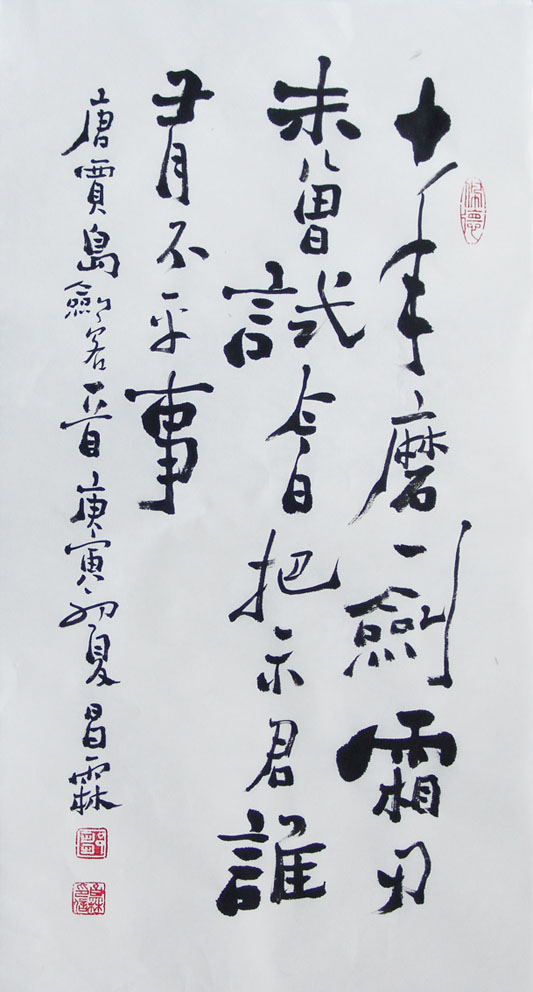 十年磨一劍霜刃
未曾試今日把示君誰
有不平事
唐賈島劍客一首 庚寅初夏 昌霖